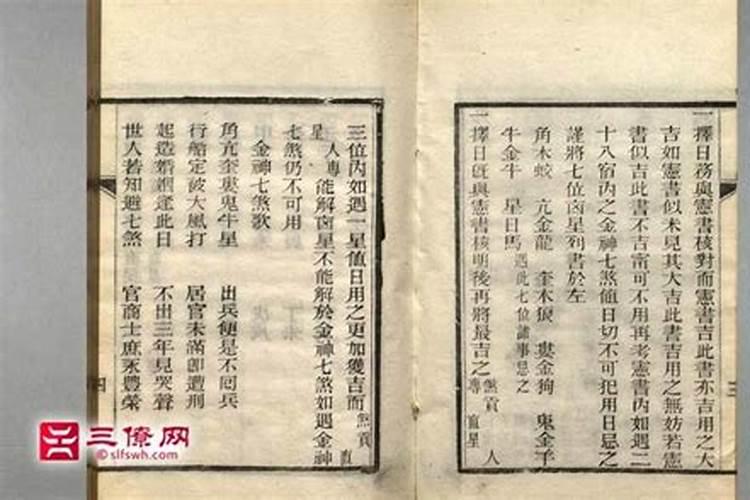 一擇日務與憲書核對而憲書吉此書亦吉用之大
吉如憲書似未見其大吉此書吉用之無妨若憲
書似吉此書不吉甯可不用再考憲書內如遇二
十八宿內之金神七煞值日切不可犯用日忌之
謹將七位凶星列書於左
角木蛟 亢金龍 奎木狼 婁金狗 鬼金羊
牛金牛 星日馬 遇此七位諸事忌之
一擇日既與憲書核明後再將最吉之煞貢專直星人
三位內如遇一星值日用之更加獲吉而煞貢直
星人專能解凶星不能解於金神七煞如遇金神
七煞仍不可用
金神七煞歌
角亢奎婁鬼牛星 出兵便是不回兵
行船定被大風打 居官未滿即遭刑
起造婚姻逢此日 不出三年見哭聲
世人若知避七煞 官商士庶永豐榮
三
四
三僚网
©slfswh.com